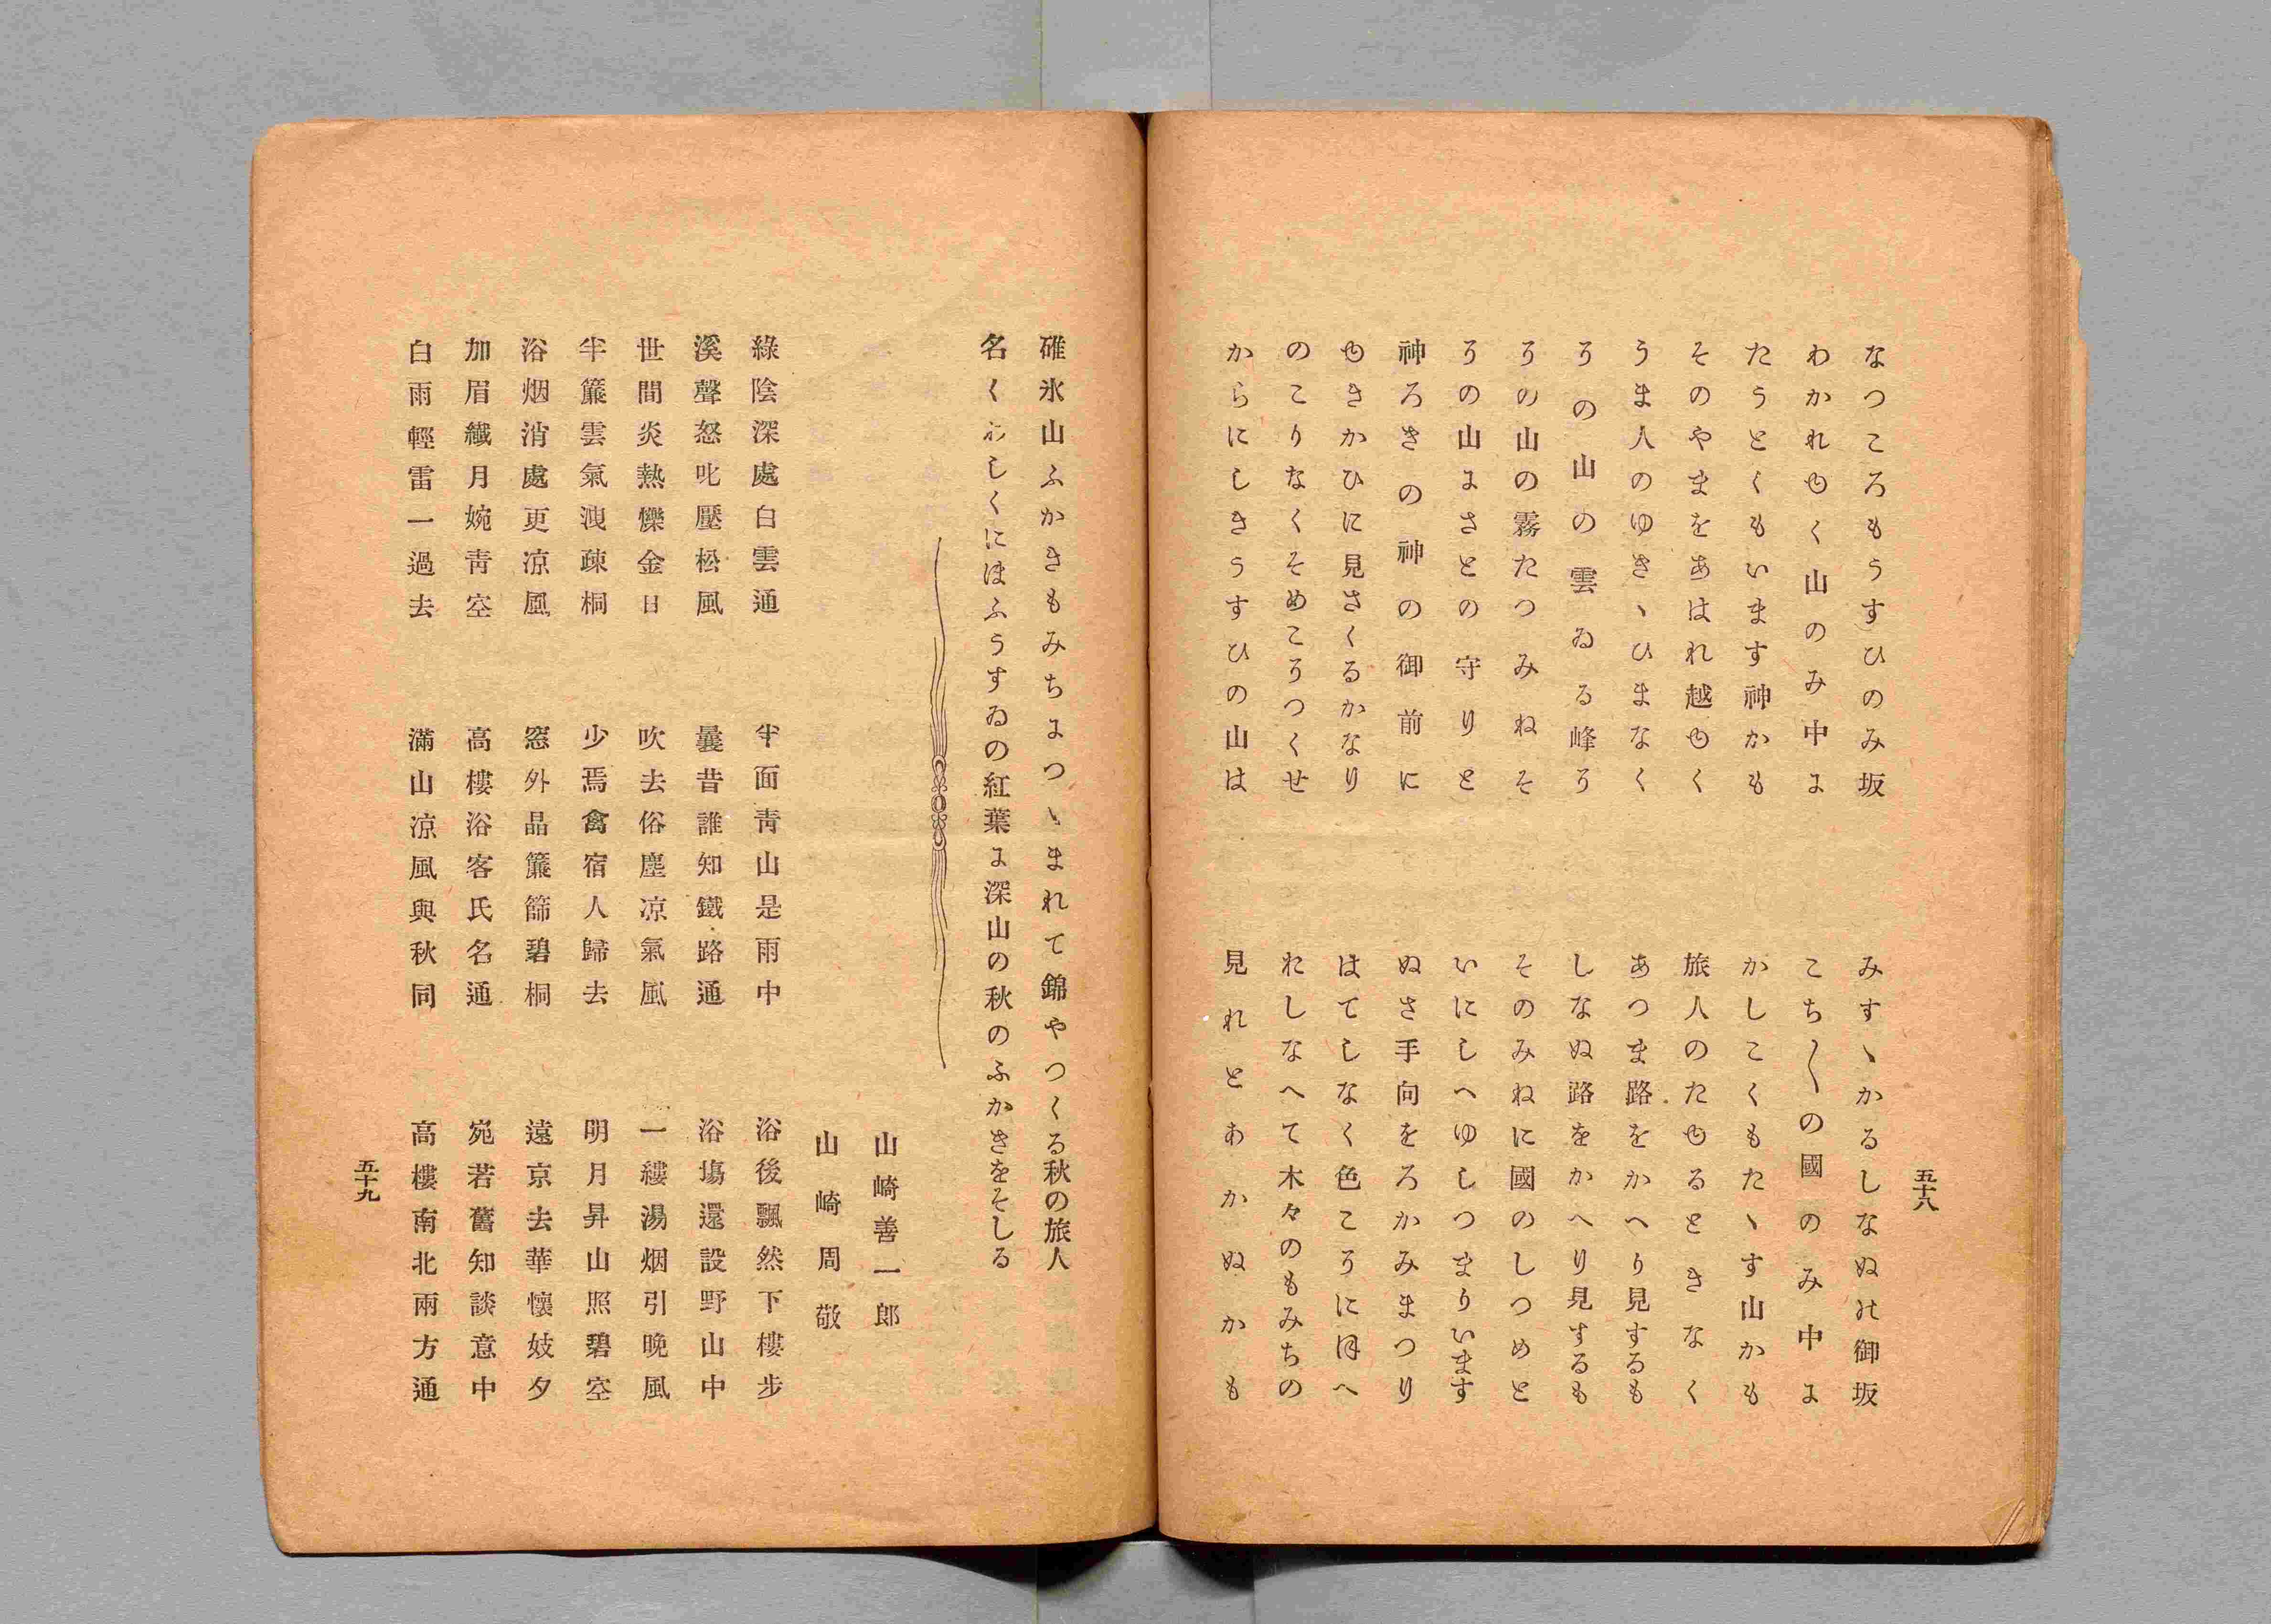 五十八
なつころもうすひのみ坂
みすゝかるしなぬの御坂
わかれゆく山のみ中に
こち〱の國のみ中に
たうとくもいます神かも
かしこくもたゝす山かも
そのやまをあはれ越ゆく
旅人のたゆるときなく
うま人のゆきゝひまなく
あつま路をかへり見するも
その山の雲ゐる峰そ
しなぬ路をかへり見するも
その山の霧たつみねそ
そのみねに國のしつめと
その山にさとの守りと
いにしへゆしつまりいます
神ろきの神の御前に
ぬさ手向をろかみまつり
ゆきかひに見さくるかなり
はてしなく色こそにほへ
のこりなくそめこそつくせ
おしなへて木々のもみちの
からにしきうすひの山は
見れとあかぬかも
碓氷山ふかきもみちにつゝまれて錦やつくる秋の旅人
名くわしくにほふうすゐの紅葉に深山の秋のふかきをそしる
山崎善一郎
山崎周敬
綠陰深處白雲通
半面靑山是雨中
浴後飄然下樓步
溪聲怒叱壓松風
曩昔誰知鐵路通
浴塲還設野山中
世間炎熱爍金日
吹去俗塵凉氣風
一縷湯烟引晩風
半簾雲氣洩疎桐
少焉禽宿人歸去
明月昇山照碧空
浴烟消處更凉風
窓外晶簾篩碧桐
遠京去華懷妓夕
加眉纖月婉靑空
高樓浴客氏名通
宛若舊知談意中
白雨輕雷一過去
滿山凉風與秋同
高樓南北兩方通
五十九